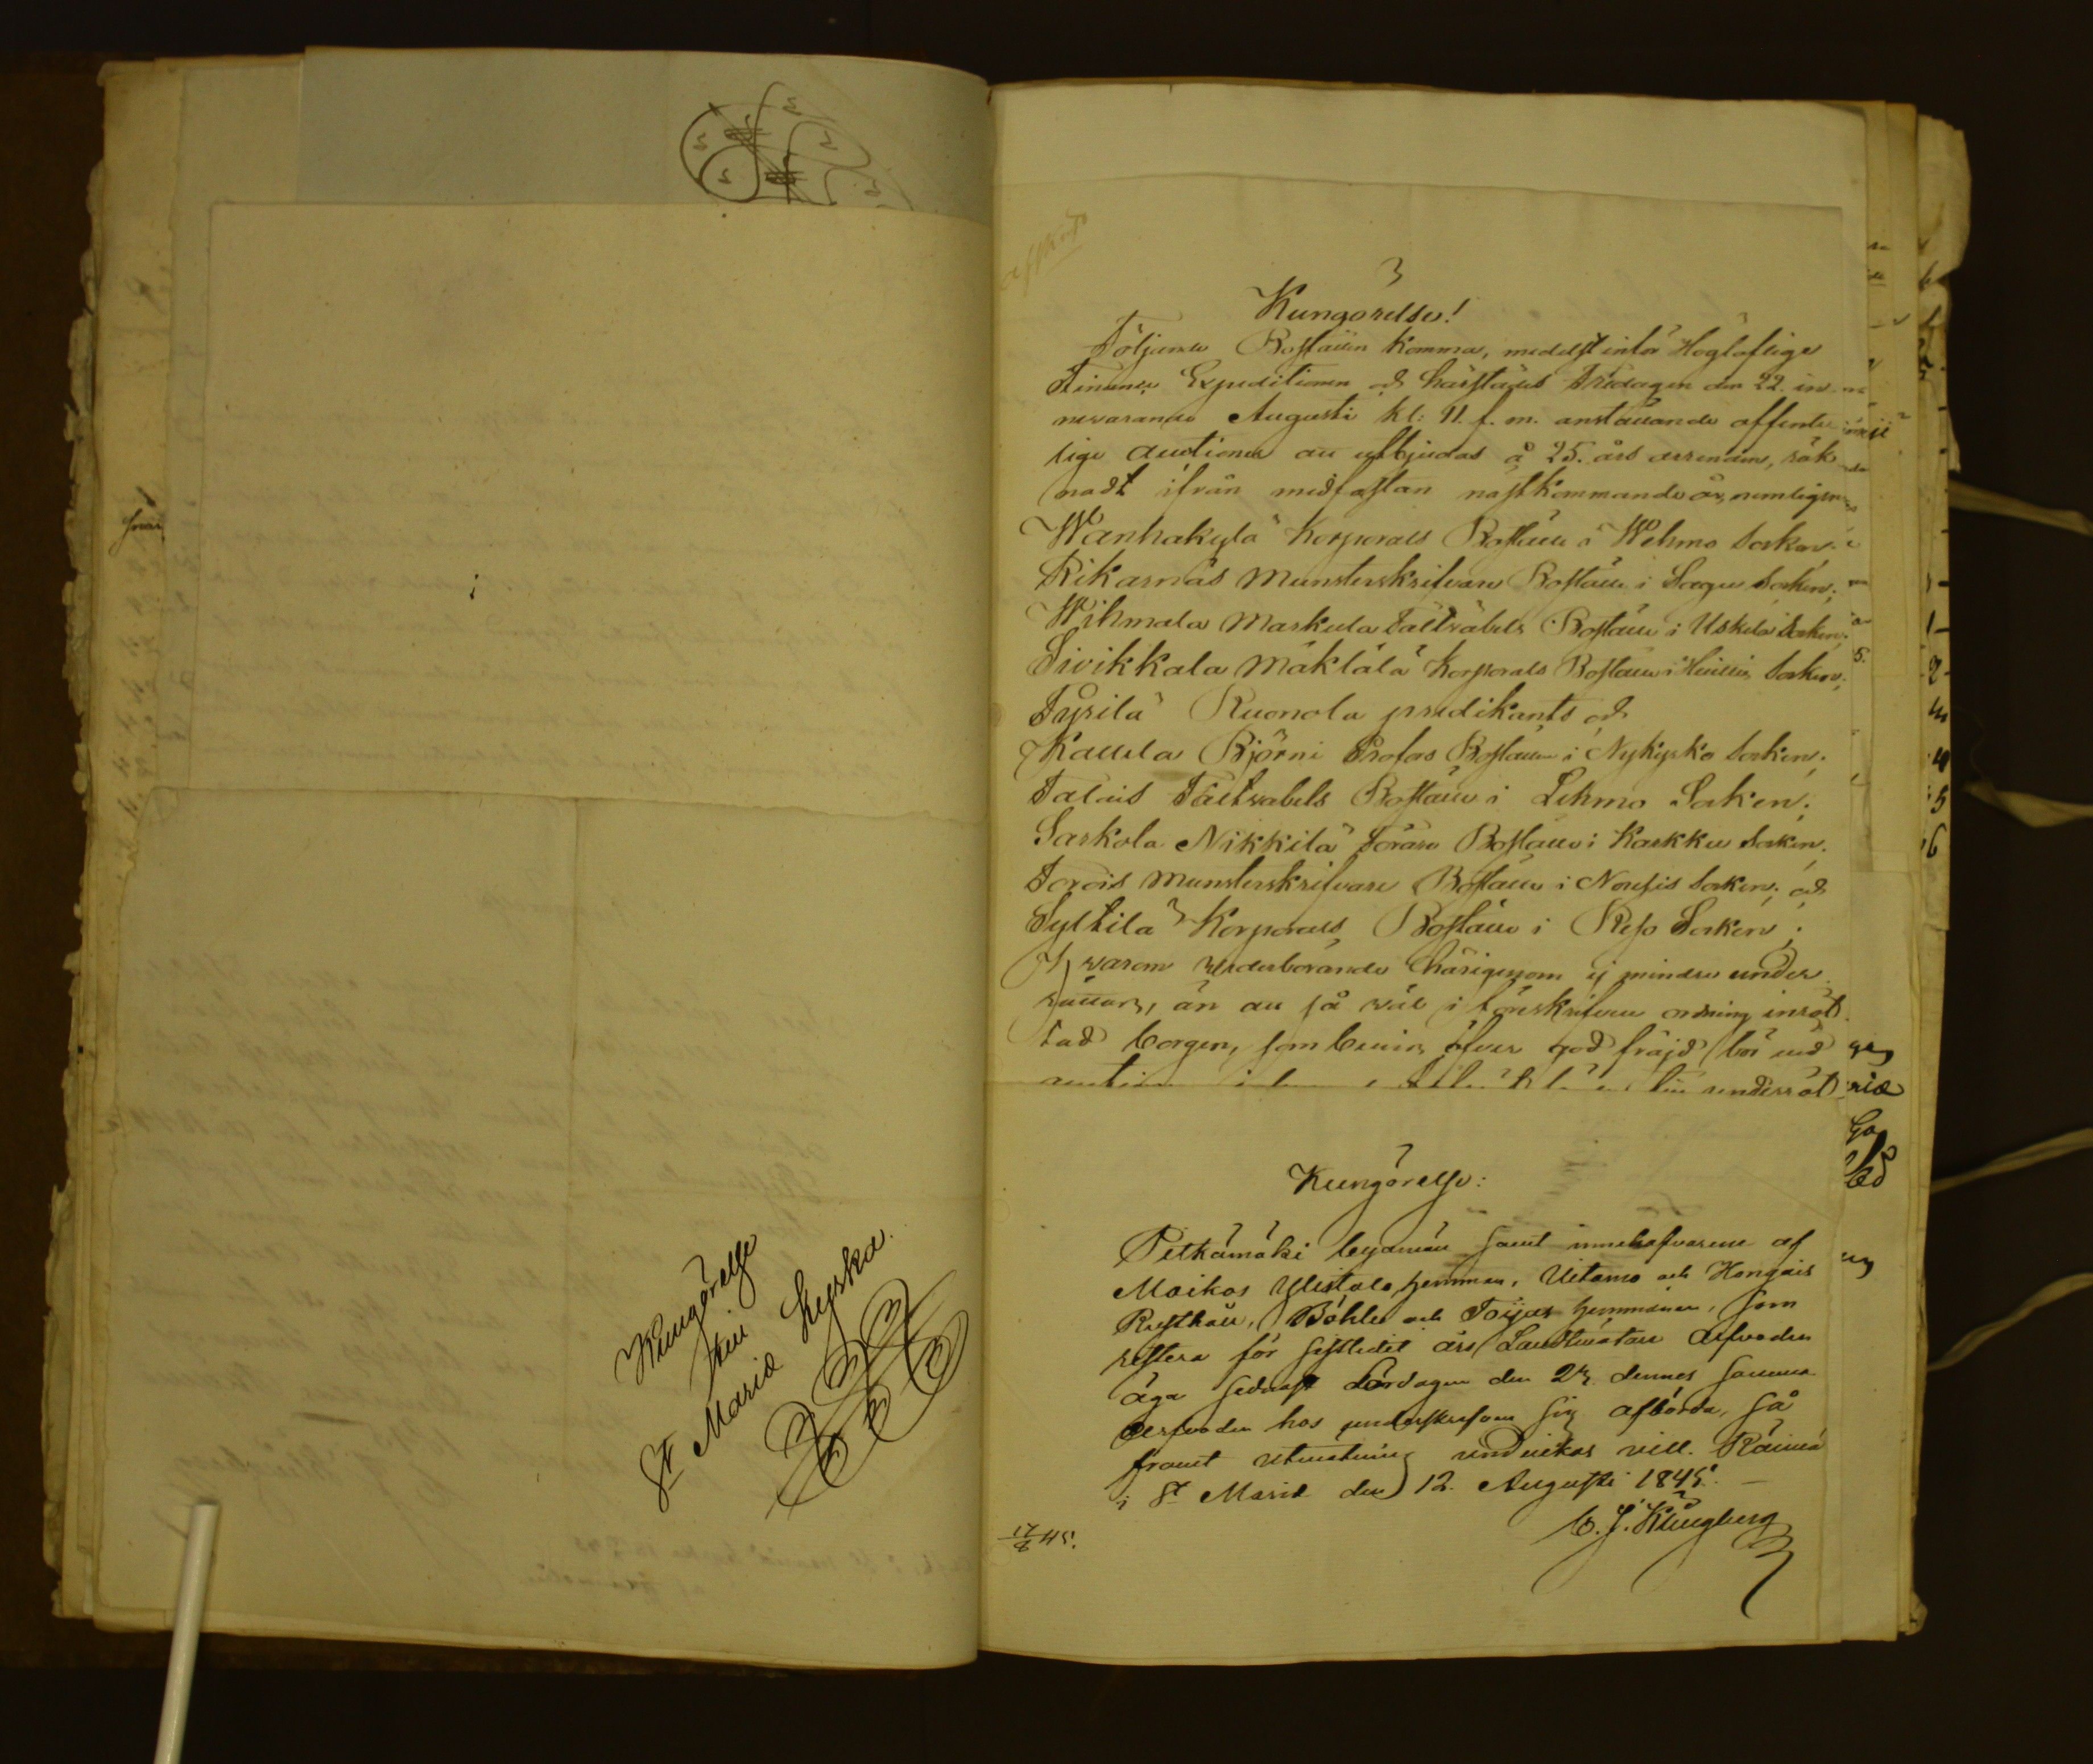 Kungörelse
för
St Mariæ Kyrka.
afskrift
Kungörelse!
Följande Boställen komma, medelst inför Högloflige
Finance Expeditionen och härstädes Fredagen den 22. in-
nevarande Augusti kl: 11. f. m. anställande offent-
lige auctioner att utbjudas å 25. års arrenden, räk-
nadt ifrån midfastan nästkommande år, nemligen
Wanhakylä Korporals Boställe i Wehmo Socken;
Rikasnäs Munsterskrifvare Boställe i Sagu Socken;
Wihmala Markula Fältväbels Boställe i Uskela Socken;
Sivikkala Mäkkälä Korporals Boställe i Socken;
Fyrilä Ruonola predikants och
Kaukola Björni Profos Boställe i Nykyrko Socken;
Talais Fältväbels Boställe i Lehmo Socken;
Sarkola Nikkilä Förare Boställe i Karkku Socken;
Torois Munsterskrifvare Boställe i Nousis Socken; och
Syltilä Korporals Boställe i Reso Socken;
Hvarom vederbörande härigenom ej mindre under-
rättas, än att så väl i föreskrifven ordning inrät-
tad borgen, som bevis öfver god fräjd bör vid
underrät
Kungörelse:
Pitkämäki byamän samt innehafvarene af
Moikos Ylistalo hemman, Uetamo och Hongais
Rusthåll, Böhle och Toijas hemmanen, som
restera för sistledit års Landtmätare Arfvoden
äga sednast Lördagen den 23 dennes samma
Arfvoden hos underskrefven sig afbörda, så
framt utmätning undvikas vill. Räimä
i St Mariæ den 12. Augusti 1845. —
C. J. Klingberg
17/8 45.